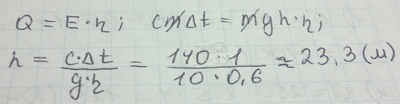 Q = E · η ; cm̸Δt = m̸gh · η ;
h = \frac{c·Δt}{g·η} = \frac{140·1}{10·0,6} ≈ 23,3 (м)